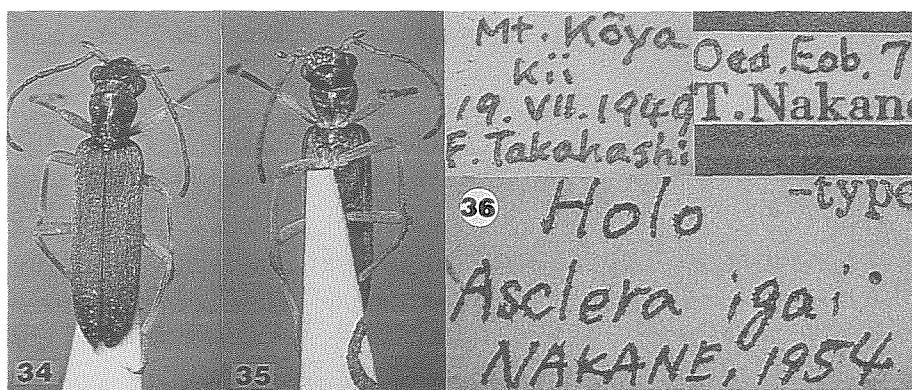 34
35
Mt. Kôya
Kii
19. VII. 1949
F. Takahashi
Oed. Eob. 7
T. Nakane
36
Holo -type
Asclera igai
NAKANE, 1954